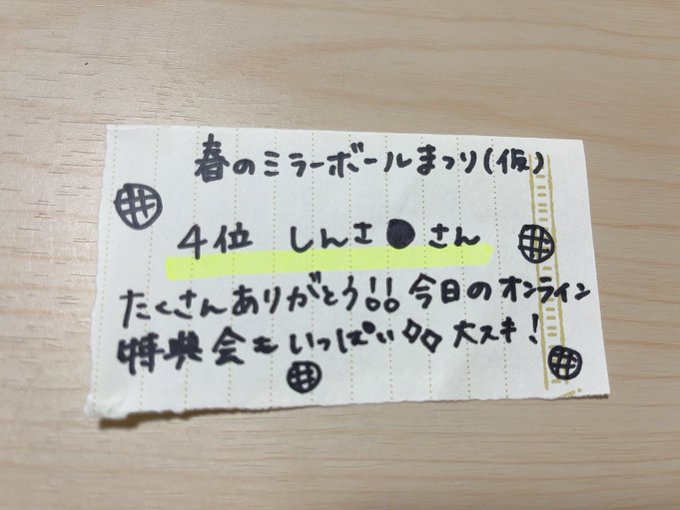 春のミラーボールまつり(仮)
4位 しんさ●さん
たくさんありがとう!!今日のオンライン
特典会もいっぱい◇◇大スキ!